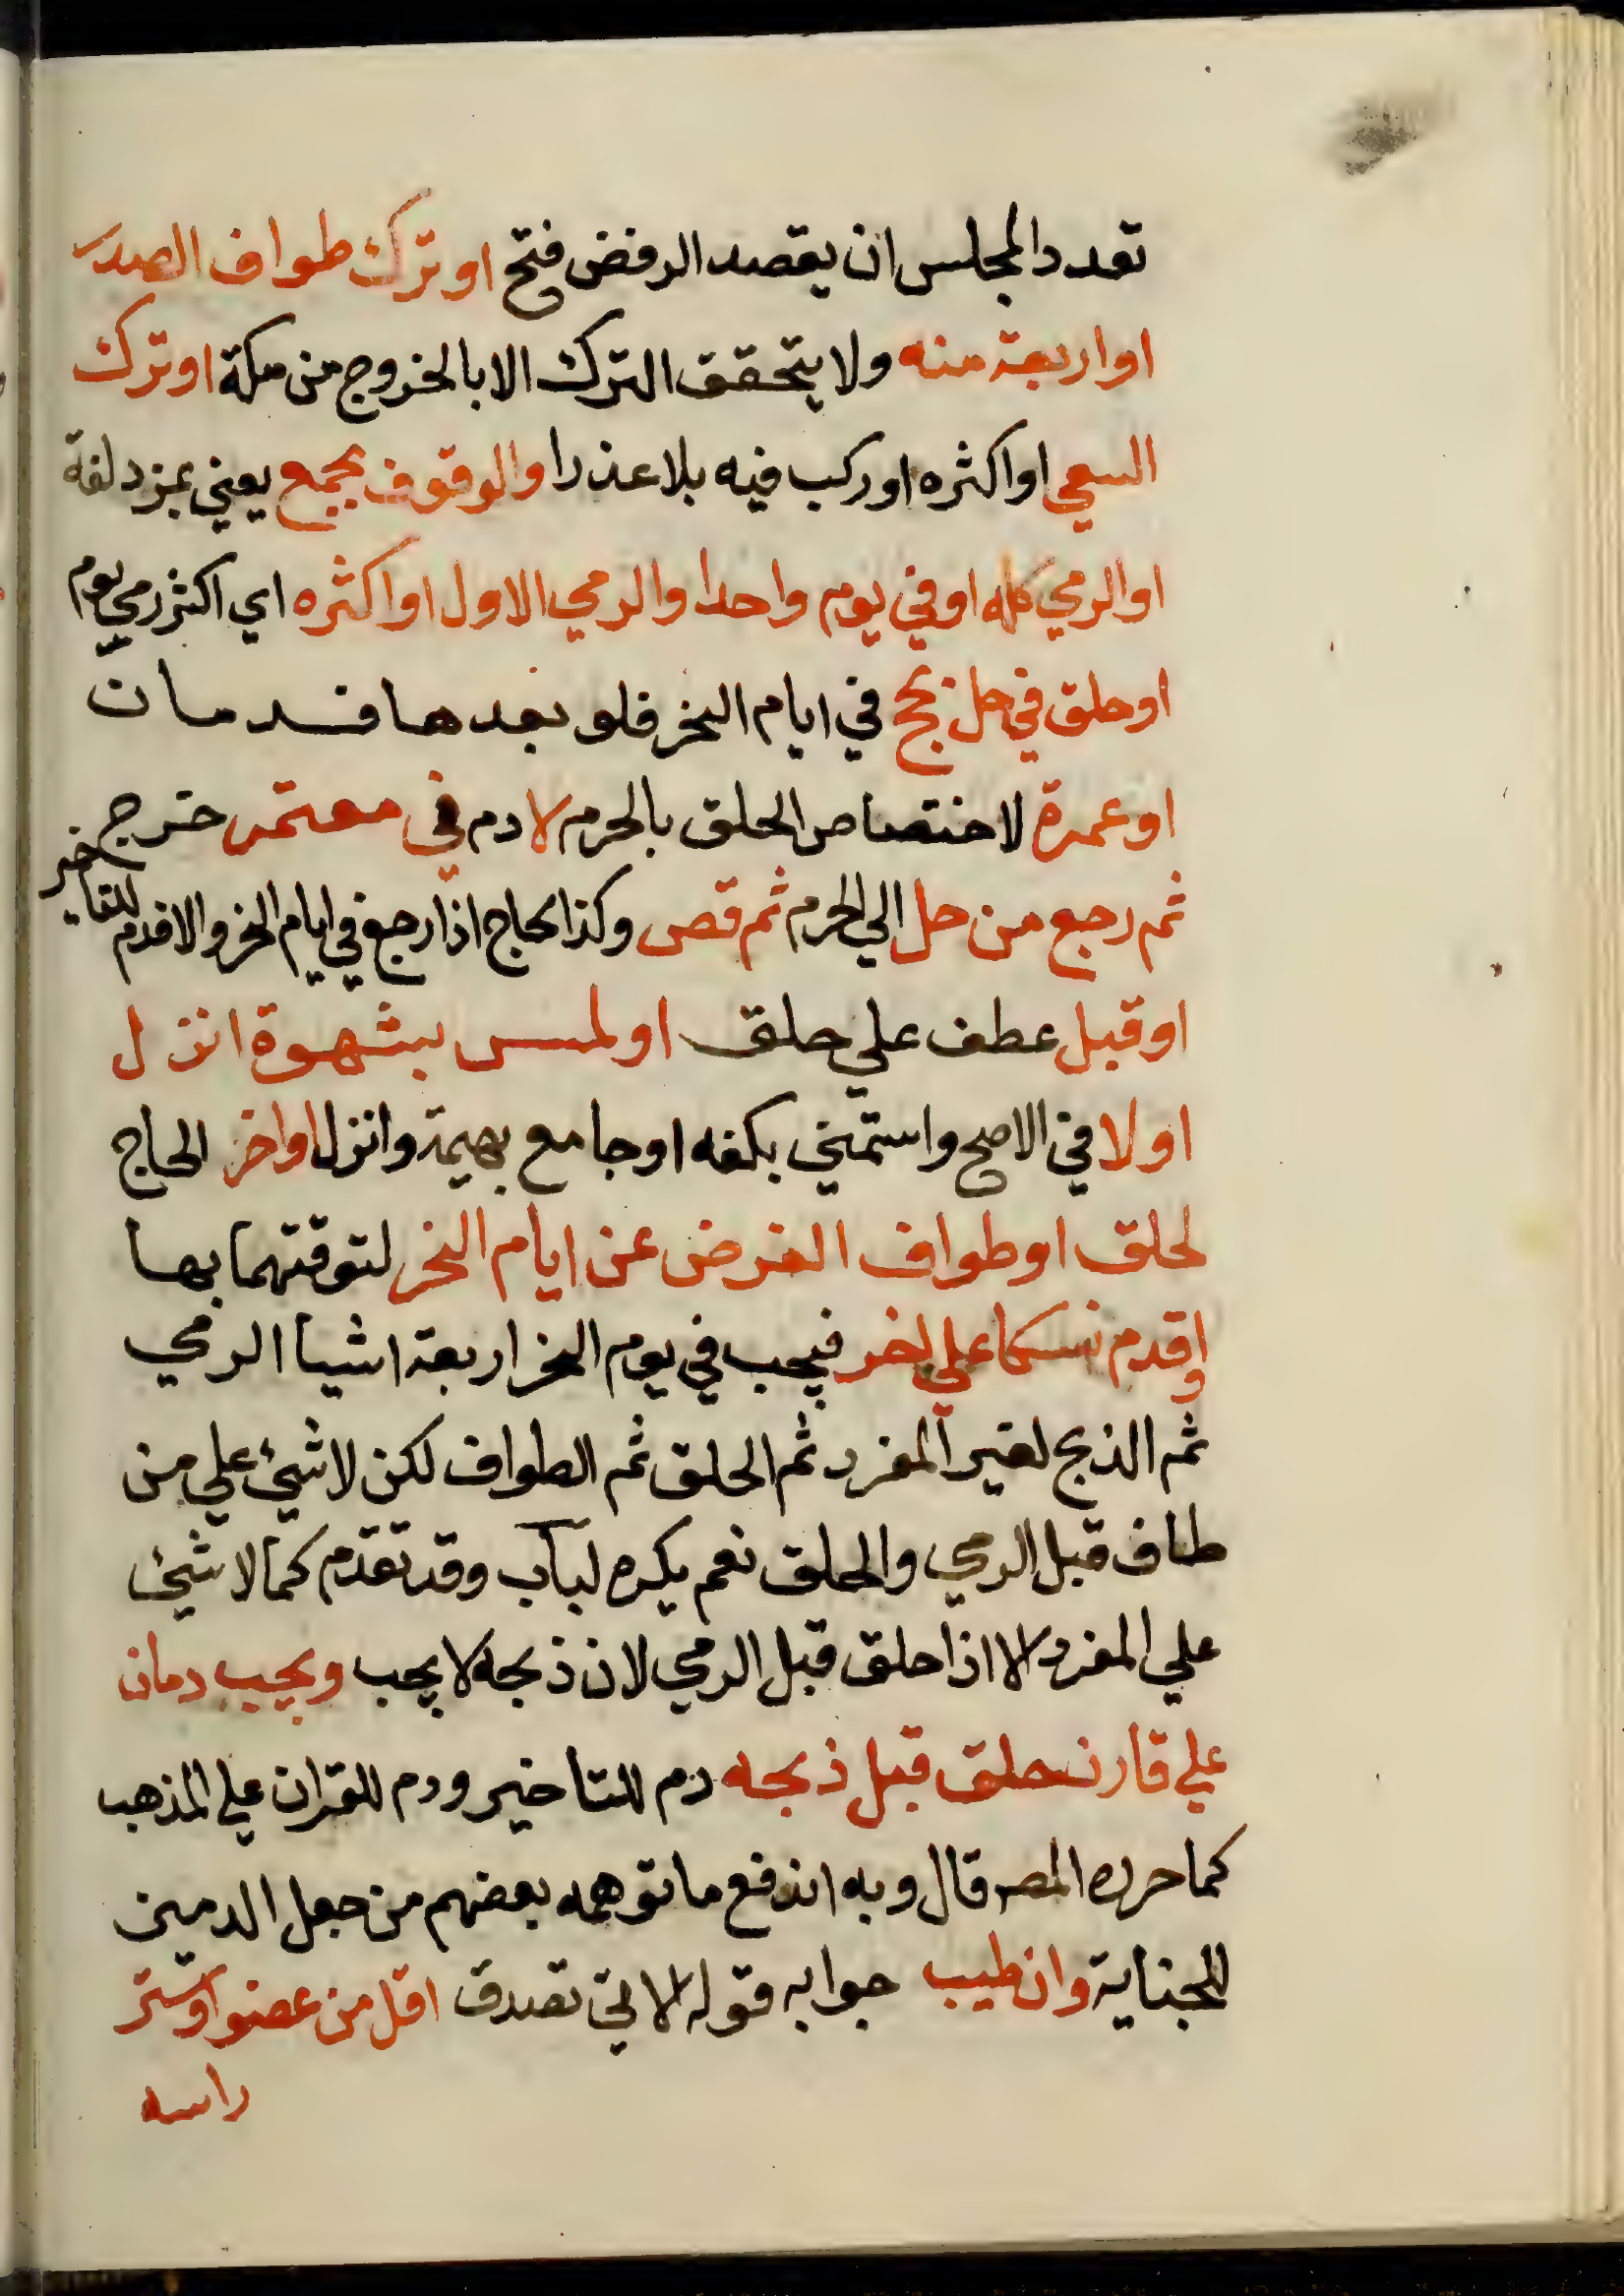 تعدد المجلس ان يقصد الرفض فتح او ترك طواف الصدر
او اربعة منه ولا يتحقق الترك الا بالخروج من مكة او ترك
السعي او اكثره او ركب فيه بلا عذر او الوقوف بجمع يعني بمزدلفة
او الرمي كله او في يوم واحد او الرمي الاول او اكثره اي اكثر رمي يوم
او حلق في حل بحج في ايام النحر فلو بعدها فدمان
او عمرة لاختصاص الحلق بالحرم لا دم في معتمر خرج
ثم رجع من حل الي الحرم ثم قص وكذا الحاج اذا رجع في ايام النحر والا فدم للتاخير
او قبل عطف علي حلق او لمس بشهوة انزل
او لا في الاصح واستمني بكفه او جامع بهيمة وانزل او اخر الحاج
لحلق او طواف الفرض عن ايام النحر لتوقتهما بها
او قدم نسكا علي اخر فيجب في يوم النحر اربعة اشيا الرمي
ثم الذبح لغير المفرد ثم الحلق ثم الطواف لكن لا شيئ علي من
طاف قبل الرمي والحلق نعم يكره لباب وقد تقدم كما لا شيئ
علي المفرد الا اذا حلق قبل الرمي لان ذبحه لا يجب ويجب دمان
علي قارن حلق قبل ذبحه دم للتاخير ودم للقران علي المذهب
كما حرره المص قال وبه اندفع ما توهمه بعضهم من جعل الدمين
للجناية وان طيب جوابه قوله الاتي تصدق اقل من عضو او ستر
راسه